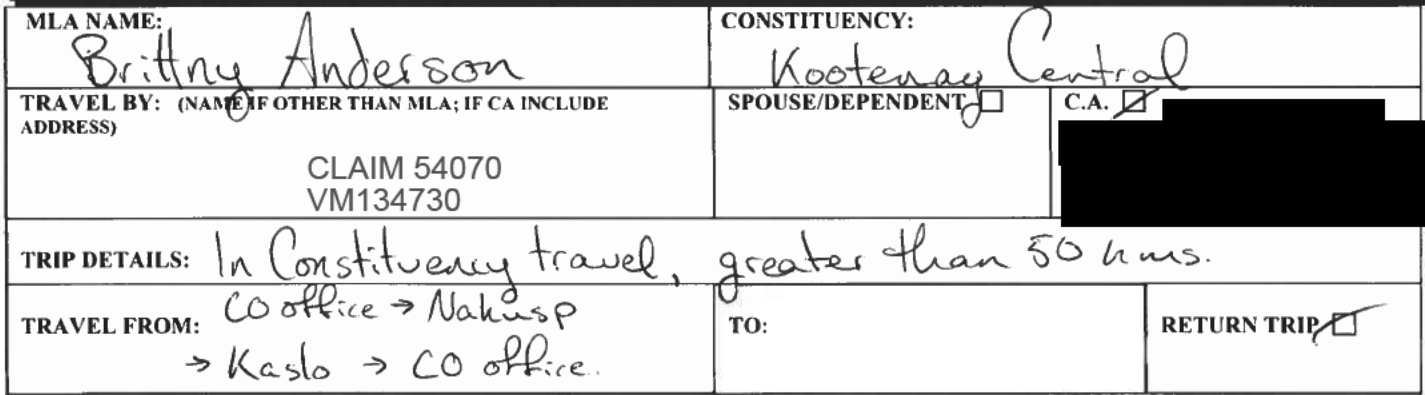 MLA NAME:
Brittny Anderson
CONSTITUENCY:
Kootenay Central
TRAVEL BY: (NAME IF OTHER THAN MLA; IF CA INCLUDE
ADDRESS)
CLAIM 54070
VM134730
SPOUSE/DEPENDENT
C.A.
TRIP DETAILS: In Constituency travel, greater than 50 kms.
TRAVEL FROM: CO office → Nakusp
→ Kaslo → CO office.
TO:
RETURN TRIP